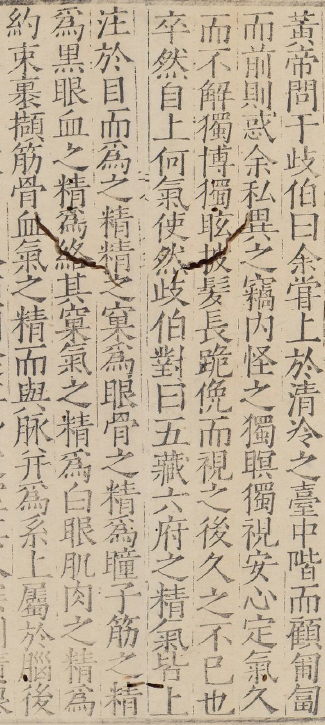 黃帝問于歧伯曰余嘗上於清冷之臺中階而顧匍匐
而前則惑余私異之竊内怪之獨瞑獨視安心定氣久
而不解獨博獨眩披髮長跪俛而視之後久之不已也
卒然自上何氣使然歧伯對曰五藏六府之精氣皆上
注於目而爲之精精之窠爲眼骨之精爲瞳子筋之精
爲黒眼血之精爲絡其窠氣之精爲白眼肌肉之精爲
約束裹擷筋骨血氣之精而與脉并爲系上屬於腦後